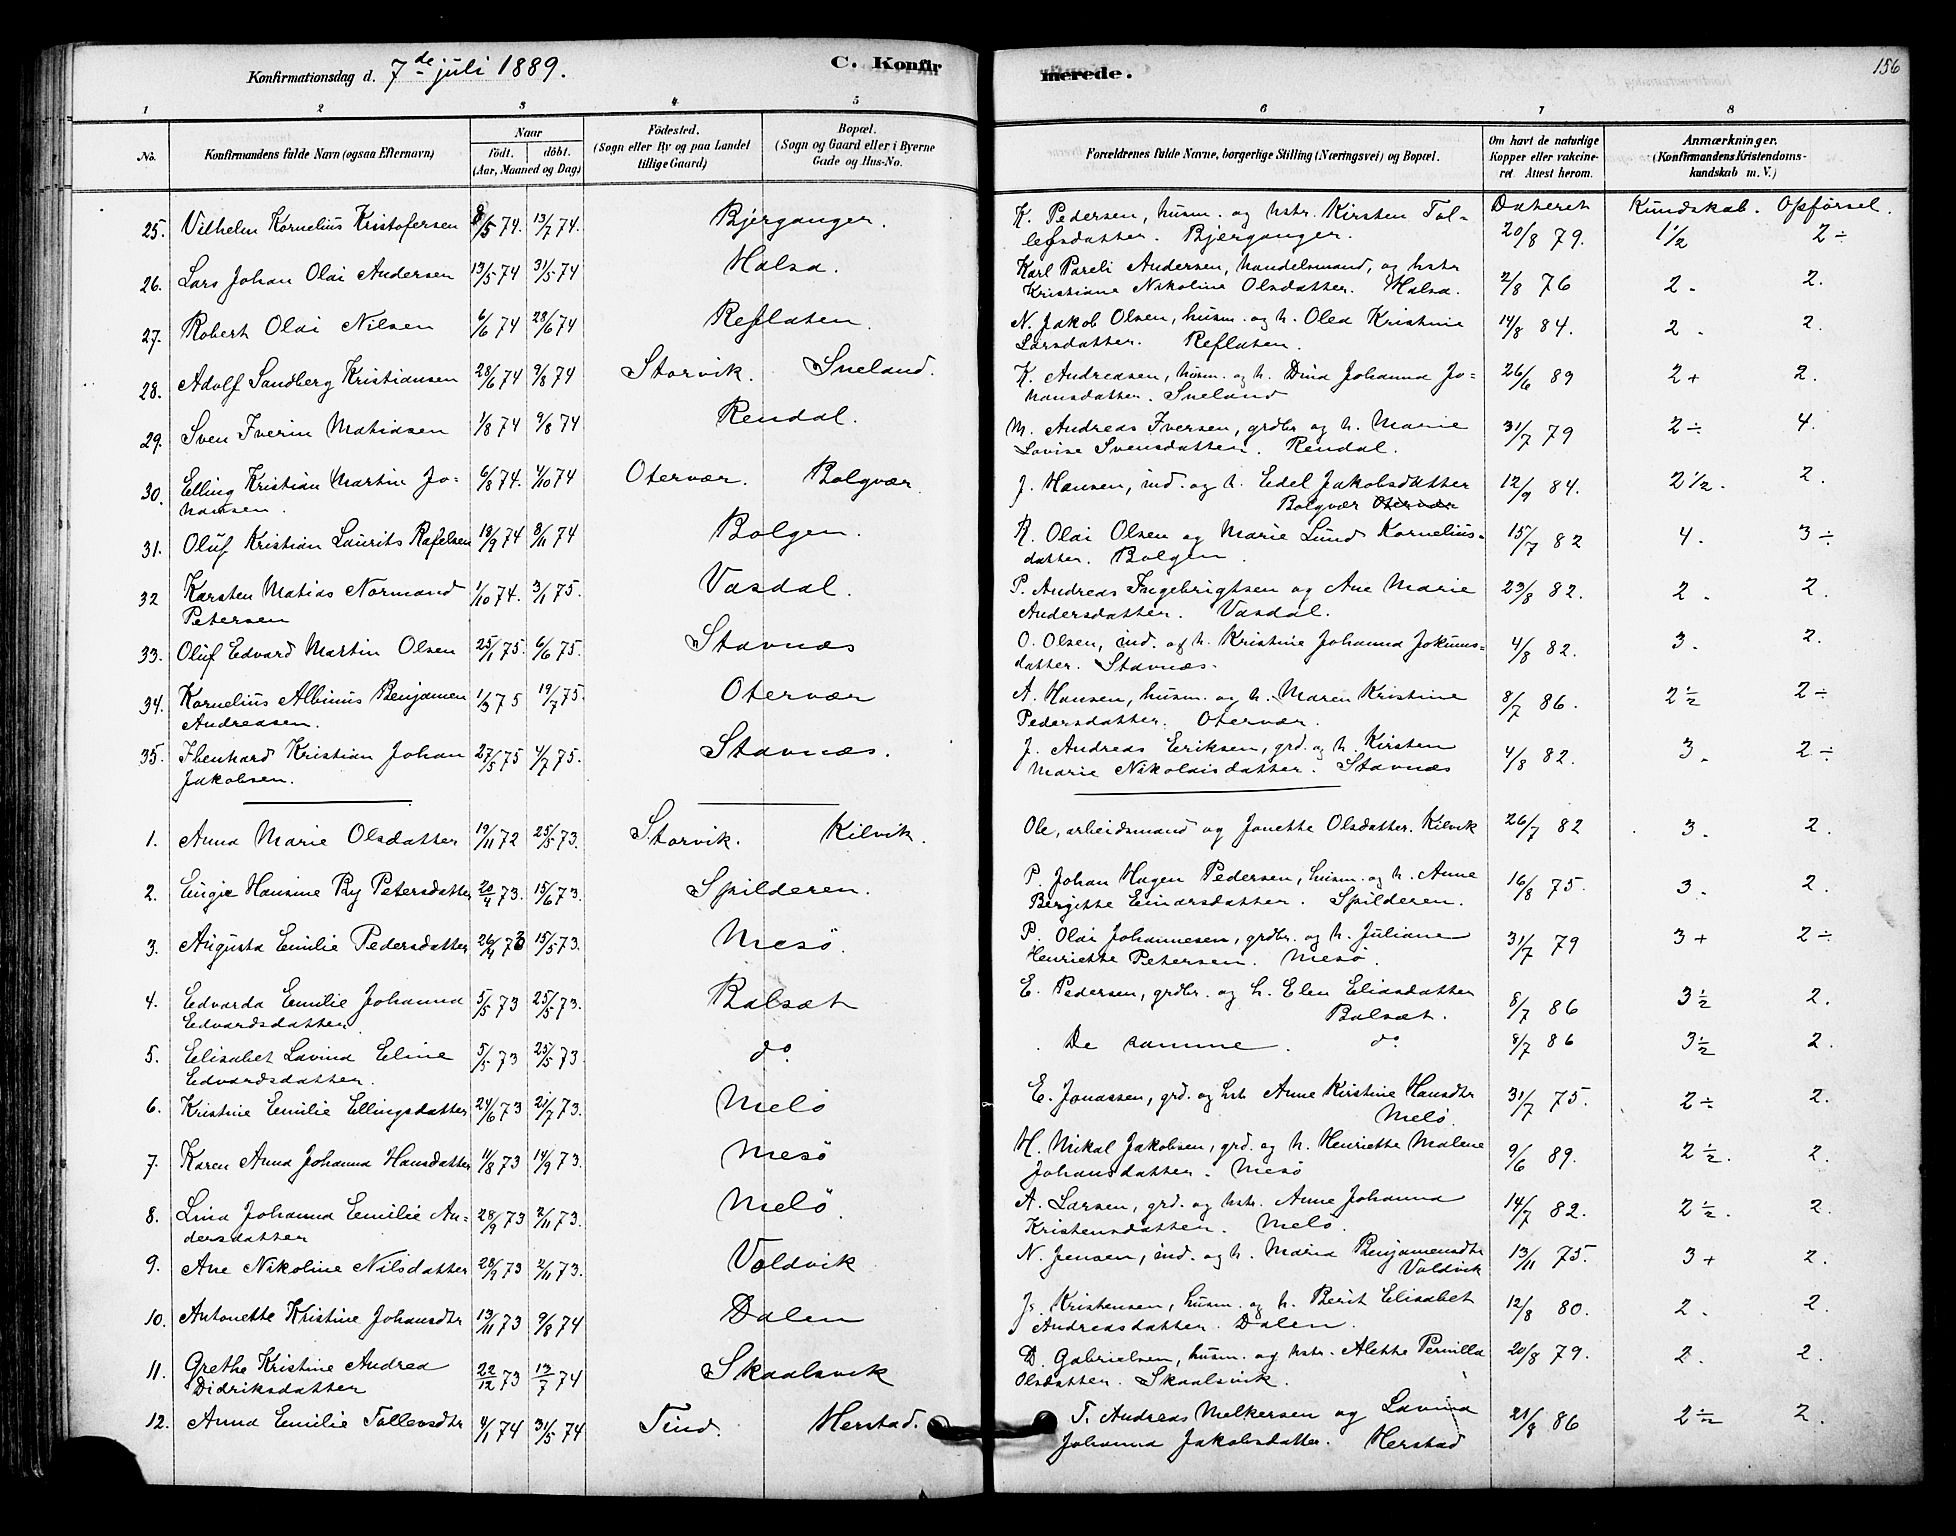 Konfirmationsdag d. 7de juli 1889. C. Konfirmerede. 156
1 2 3 4 5 6 7 8
No. Konfirmandens fulde Navn (ogsaa Efternavn) Naar födt. döbt. (Aar, Maaned og Dag) Födested. (Sogn eller By og paa Landet tillige Gaard) Bopæl. (Sogn og Gaard eller i Byerne Gade og Hus-No. Forældrenes fulde Navne, borgerlige Stilling (Næringsvei) og Bopæl. Om havt de naturlige Kopper eller vakcineret. Attest herom. Anmærkninger. (Konfirmandens Kristendomskundskab m. V.)
Dateret Kundskab. Opførsel.
25. Vilhelm Kornelius Kristofersen 8/5 74. 13/7 74. Bjerganger. K. Pedersen, husm. og hstr. Kirsten Tollefsdatter. Bjerganger. 20/8 79. 1½ 2÷
26. Lars Johan Olai Andersen 13/5 74 31/5 74 Halsa. Karl Pareli Andersen, handelsmand, og hstr Kristiane Nikoline Olsdatter. Halsa. 2/8 76 2. 2.
27. Robert Olai Nilsen 6/6 74 28/6 74 Reflaten. N. Jakob Olsen, husm. og h. Olea Kristine Larsdatter. Reflaten. 14/8 84. 2. 2.
28. Adolf Sandberg Kristiansen 28/6 74 9/8 74 Storvik. Sneland. K. Andreasen, husm. og h. Dina Johanna Johansdatter. Sneland 26/6 89 2+ 2.
29. Sven Iverin Matiasen 1/8 74 9/8 74 Rendal. M. Andreas Iversen, grdbr. og h. Marie Lovise Svensdatter. Rendal. 31/7 79 2÷ 4.
30. Elling Kristian Martin Johansen. 6/8 74. 4/10 74 Otervær. Bolgvær. J. Hansen, ind. og h. Edel Jakobsdatter Bolgvær Otervær 12/9 84. 2½. 2.
31. Oluf Kristian Laurits Rafelsen 19/9 74 8/11 74 Bolgen. R. Olai Olsen og Marie Lund Korneliusdatter. Bolgen. 15/7 82 4. 3÷
32 Karsten Matias Normand Petersen 1/10 74. 3/1 75. Vasdal. P. Andreas Ingebrigtsen og Ane Marie Andersdatter. Vasdal. 23/8 82. 2. 2.
33. Oluf Edvard Martin Olsen 25/1 75. 6/6 75. Stavnæs O. Olsen, ind. og h. Kristine Johanna Jokumsdatter. Stavnæs. 4/8 82. 3. 2.
34. Kornelius Albinus Benjamen Andreasen. 1/3 75 19/7 75. Otervær A. Hansen, husm. og h. Maren Kristine Pedersdatter. Otervær. 8/7 86. 2½ 2÷
35. Ibenhard Kristian Johan Jakobsen. 27/5 75 4/7 75. Stavnæs. J. Andreas Eriksen, grd. og h. Kirsten Marie Nikolaisdatter. Stavnæs 4/8 82. 3. 2÷
1. Anna Marie Olsdatter 19/11 72 25/5 73. Storvik. Kilvik. Ole, arbeidsmand og Jonette Olsdatter. Kilvik 26/7 82 3. 2.
2. Engie Hansine Ry Petersdatter 20/4 73. 15/6 73. Spilderen. P. Johan Hagen Pedersen, husm. og h. Anne Bergitte Einarsdatter. Spilderen. 16/8 75. 3. 2.
3. Augusta Emilie Pedersdatter 26/4 73 15/5 73. Mesö. P. Olai Johannesen, grdbr. og h. Juliane Henriette Petersen. Mesö. 31/7 79 3+ 2÷
4. Edvarda Emilie Johanna Edvardsdatter 5/5 73 25/5 73. Balsæt E. Pedersen, grdbr. og h. Elen Eliasdatter Balsæt. 8/7 86 3½ 2.
5. Elisabet Lavina Eline Edvardsdatter. 5/5 73 25/5 73. do. De samme. do. 8/7 86 3½ 2.
6. Kristine Emilie Ellingsdatter 24/6 73 21/7 73. Melö E. Jonassen, grd. og hst. Anne Kirstine Hansdtr Melö. 31/7 75. 2÷ 2.
7. Karen Anna Johanna Hansdatter 11/8 73 14/9 73. Mesö H. Mikal Jakobsen, grd. og h. Henriette Malene Johansdatter. Mesö 9/6 89. 2½. 2.
8. Lina Johanna Emilie Andersdatter 28/9 73 2/11 73. Melö. A. Larsen, grd. og hstr. Anne Johanna Kristensdatter. Melö. 14/7 82. 2½. 2.
9. Ane Nikoline Nilsdatter 28/9 73 2/11 73. Valdvik N. Jensen, ind. og h. Maria Benjamensdtr Valdvik 13/11 75. 3+ 2.
10. Antonette Kristine Johansdtr 13/11 73 9/8 74 Dalen J. Kristensen, husm. og h. Berit Elisabet Andreasdatter. Dalen. 12/8 80. 2. 2.
11. Grethe Kristine Andrea Didriksdatter 22/12 73 13/7 74 Skaalsvik D. Gabrielsen, husm. og hstr. Alette Pernilla Olsdatter. Skaalsvik. 20/8 79. 2. 2.
12. Anna Emilie Tollevsdtr 4/1 74 31/5 74 Tind. Herstad. T. Andreas Melkersen og Lavina Johanna Jakobsdatter. Herstad 21/8 86 2½ 2.